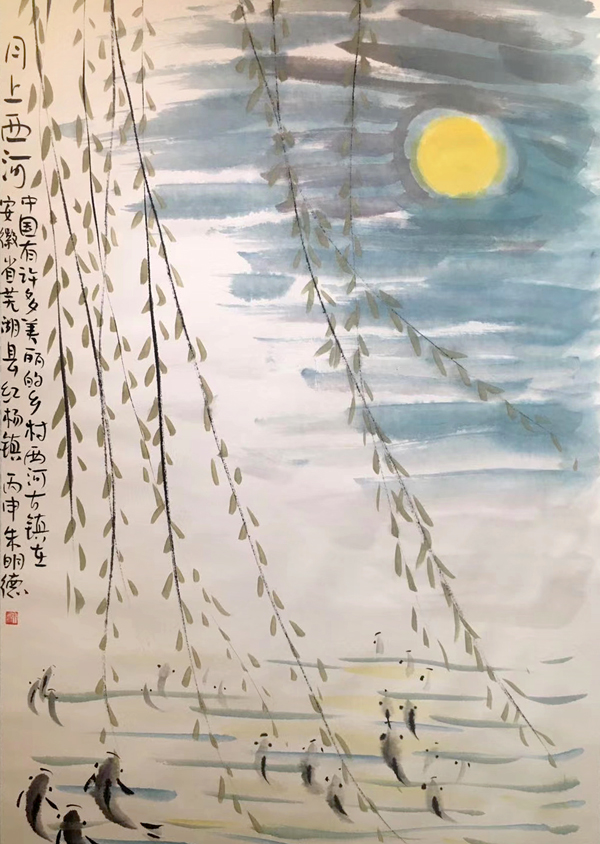 月上西河
中国有许多美丽的乡村西河古镇在
安徽省芜湖县红杨镇 丙申朱明德